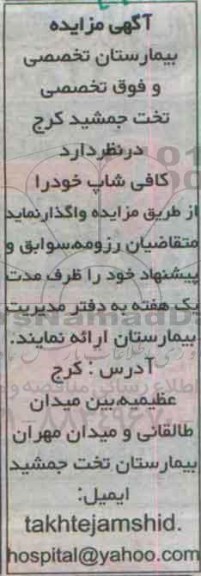 آگهی مزایده
بیمارستان تخصصی
و فوق تخصصی
تخت جمشید کرج
درنظردارد
کافی شاپ خودرا
از طریق مزایده واگذارنماید
متقاضیان رزومه،سوابق و
پیشنهاد خود را ظرف مدت
یک هفته به دفتر مدیریت
بیمارستان ارائه نمایند.
آدرس : کرج
عظیمیه،بین میدان
طالقانی و میدان مهران
بیمارستان تخت جمشید
ایمیل:
takhtejamshid.
hospital@yahoo.com